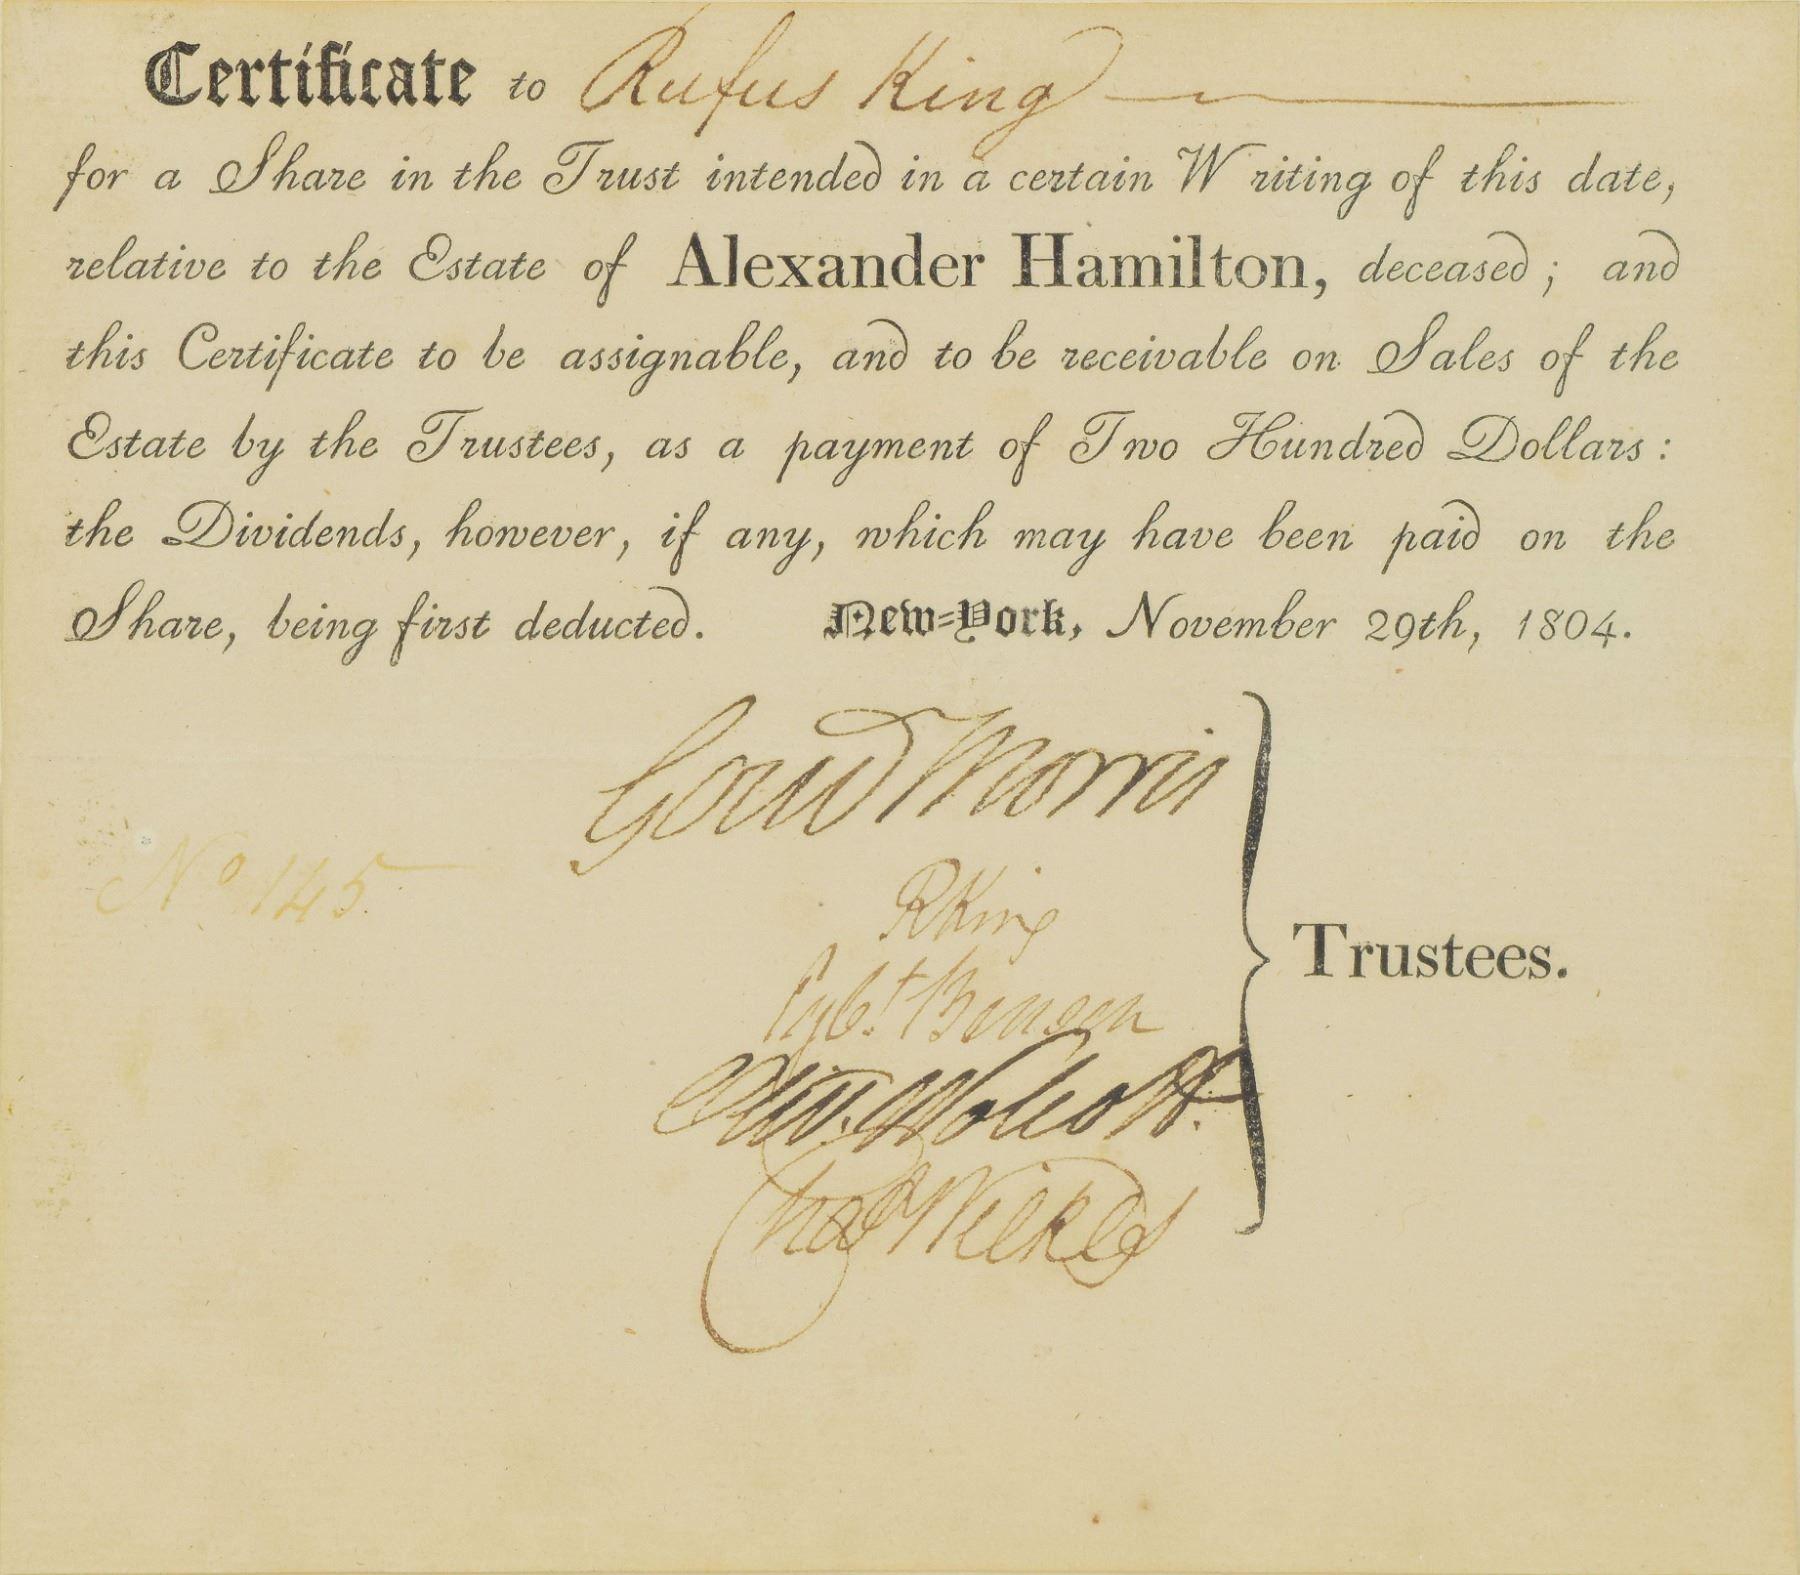 Certificate to Rufus King
for a Share in the Trust intended in a certain Writing of this date,
relative to the Estate of Alexander Hamilton, deceased; and
this Certificate to be assignable, and to be receivable on Sales of the
Estate by the Trustees, as a payment of Two Hundred Dollars:
the Dividends, however, if any, which may have been paid on the
Share, being first deducted. New-York, November 29th, 1804.
Gouv Morris
No 145
R King
Egbt Benson
Oliv. Wolcott.
Chas Wilkes
Trustees.